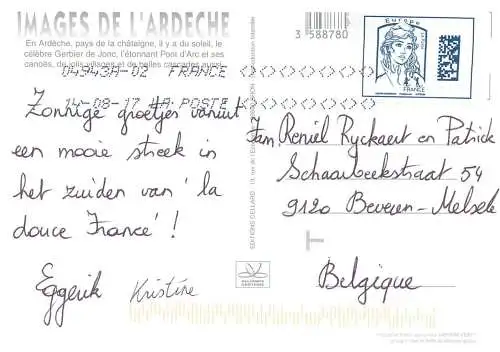 IMAGES DE L'ARDÈCHE
En Ardèche, pays de la châtaigne, il y a du soleil, le
célèbre Gerbier de Jonc, l'étonnant Pont d'Arc et ses
canoës, de jolis villages et de belles cascades aussi.
04943A-02 FRANCE
14-08-17 LA POSTE
Zonnige groetjes vanuit
een mooie streek in
het zuiden van 'la
douce France' !
Eggerik Kristine
3 588780
Europe
FRANCE
Fam. Reniel Ryckaert en Patrick
Schaarbeekstraat 54
9120 Beveren-Melsele
Belgique